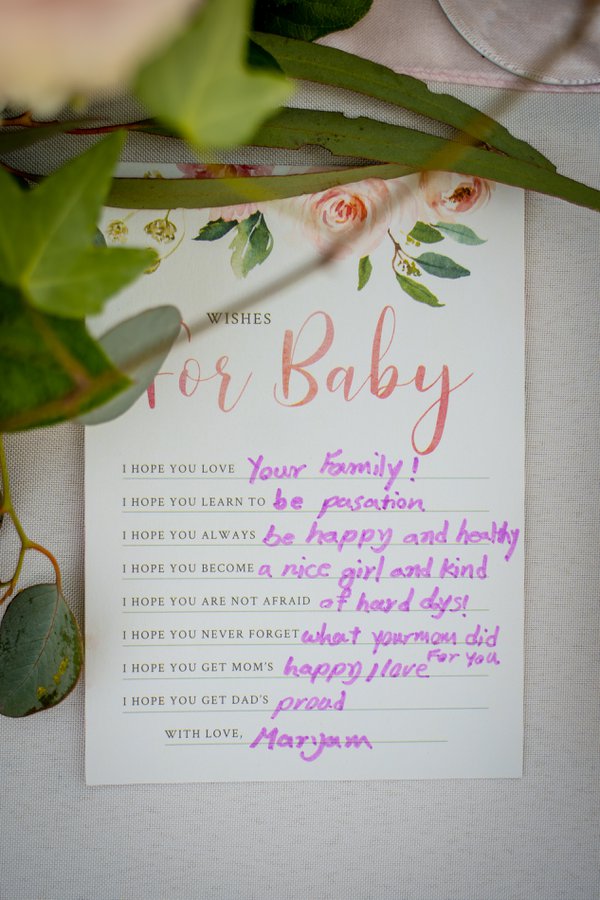 WISHES
For Baby
I HOPE YOU LOVE Your Family!
I HOPE YOU LEARN TO be pasation
I HOPE YOU ALWAYS be happy and healthy
I HOPE YOU BECOME a nice girl and kind
I HOPE YOU ARE NOT AFRAID of hard dys!
I HOPE YOU NEVER FORGET what your mom did
For you
I HOPE YOU GET MOM'S happy, love
I HOPE YOU GET DAD'S proad
WITH LOVE, Maryam